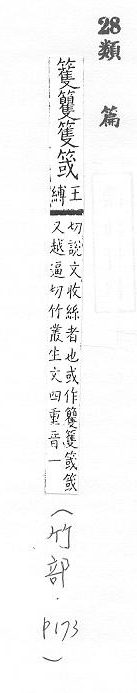 28
類篇
籆籰篗䈅
王縛
切說文收絲者也或作籰篗䈅䈅
又越逼切竹叢生文四重音一
(竹部.P173)